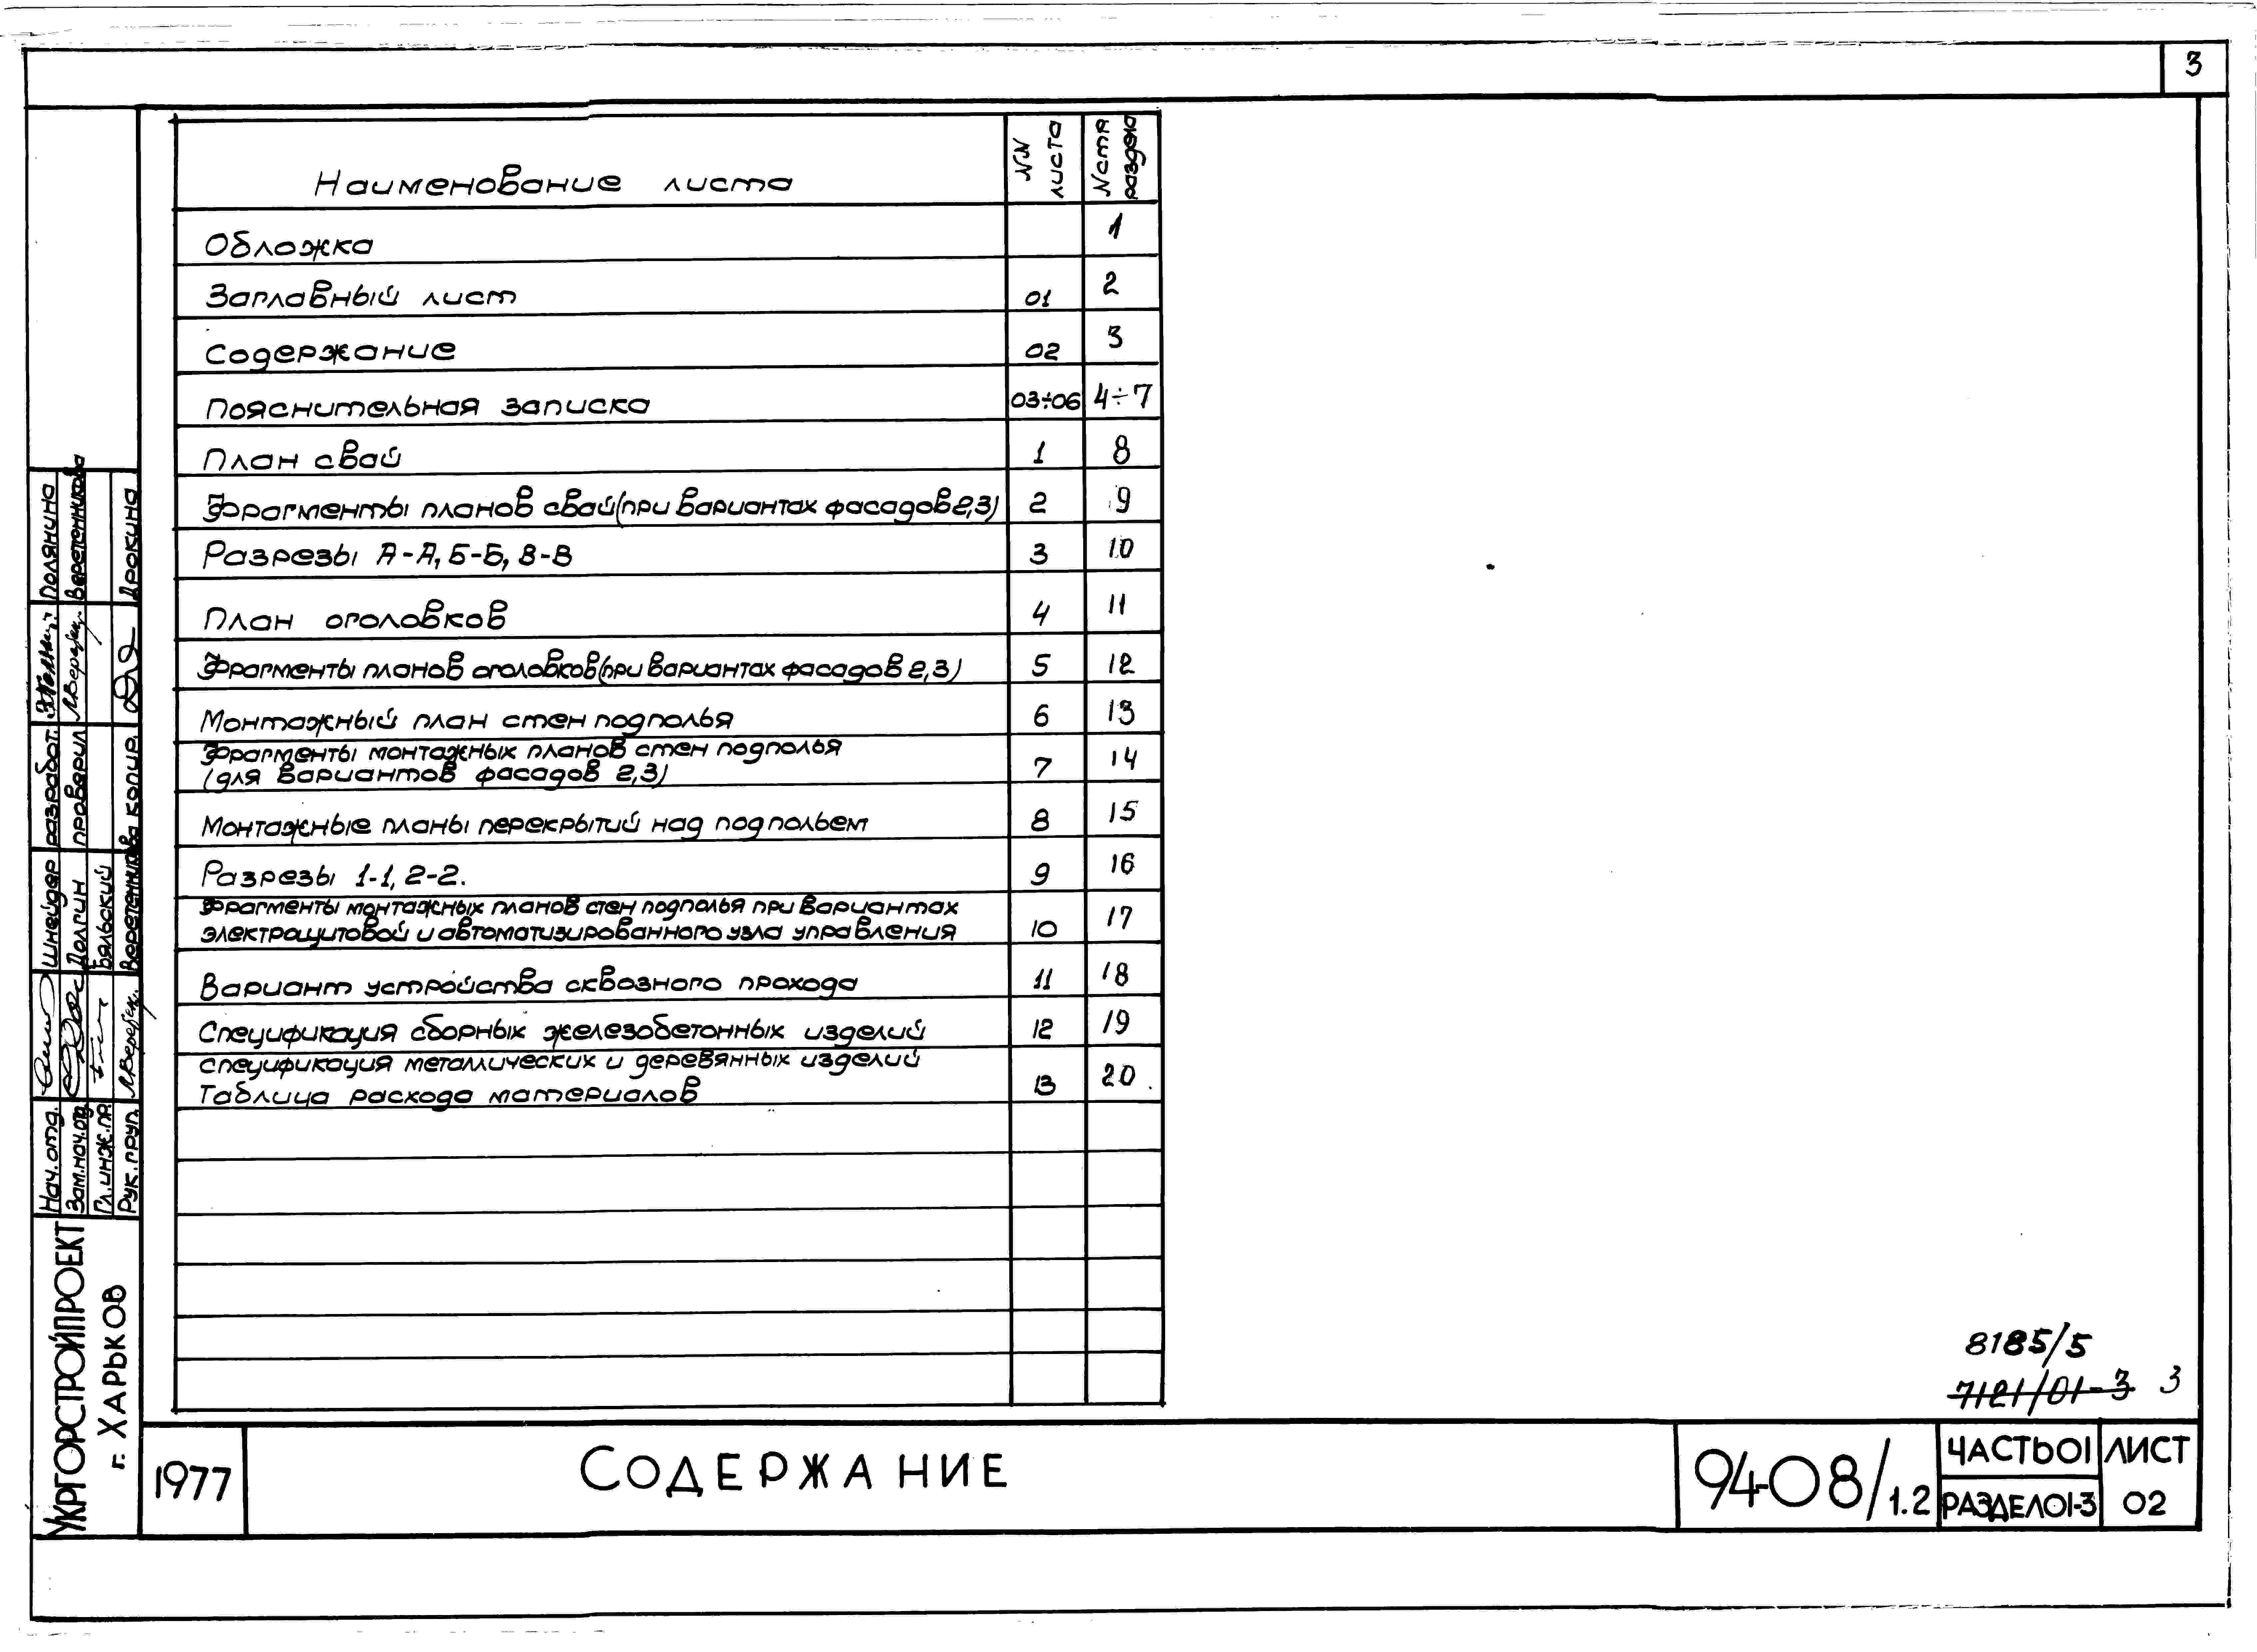 3
Наименование листа
NN листа
N стр раздела
Обложка 1
Заглавный лист 01 2
Содержание 02 3
Пояснительная записка 03÷06 4÷7
План свай 1 8
Фрагменты планов свай (при вариантах фасадов 2,3) 2 9
Разрезы А-А, Б-Б, В-В 3 10
План оголовков 4 11
Фрагменты планов оголовков (при вариантах фасадов 2,3) 5 12
Монтажный план стен подполья 6 13
Фрагменты монтажных планов стен подполья
(для вариантов фасадов 2,3) 7 14
Монтажные планы перекрытий над подпольем 8 15
Разрезы 1-1, 2-2. 9 16
Фрагменты монтажных планов стен подполья при вариантах
электрощитовой и автоматизированного узла управления 10 17
Вариант устройства сквозного прохода 11 18
Спецификация сборных железобетонных изделий 12 19
Спецификация металлических и деревянных изделий
Таблица расхода материалов 13 20
УКРГОРСТРОЙПРОЕКТ
г. ХАРЬКОВ
Нач. отд. Шнейдер разработ. Полянина
Зам. нач. отд. Долгин проверил Веретенникова
Гл. инж. пр. Бяльский
Рук. груп. Веретенникова копир. Дрокина
8185/5
7121/01-3 3
1977
СОДЕРЖАНИЕ
94-08/1.2
ЧАСТЬ 01
РАЗДЕЛ 01-3
ЛИСТ
02